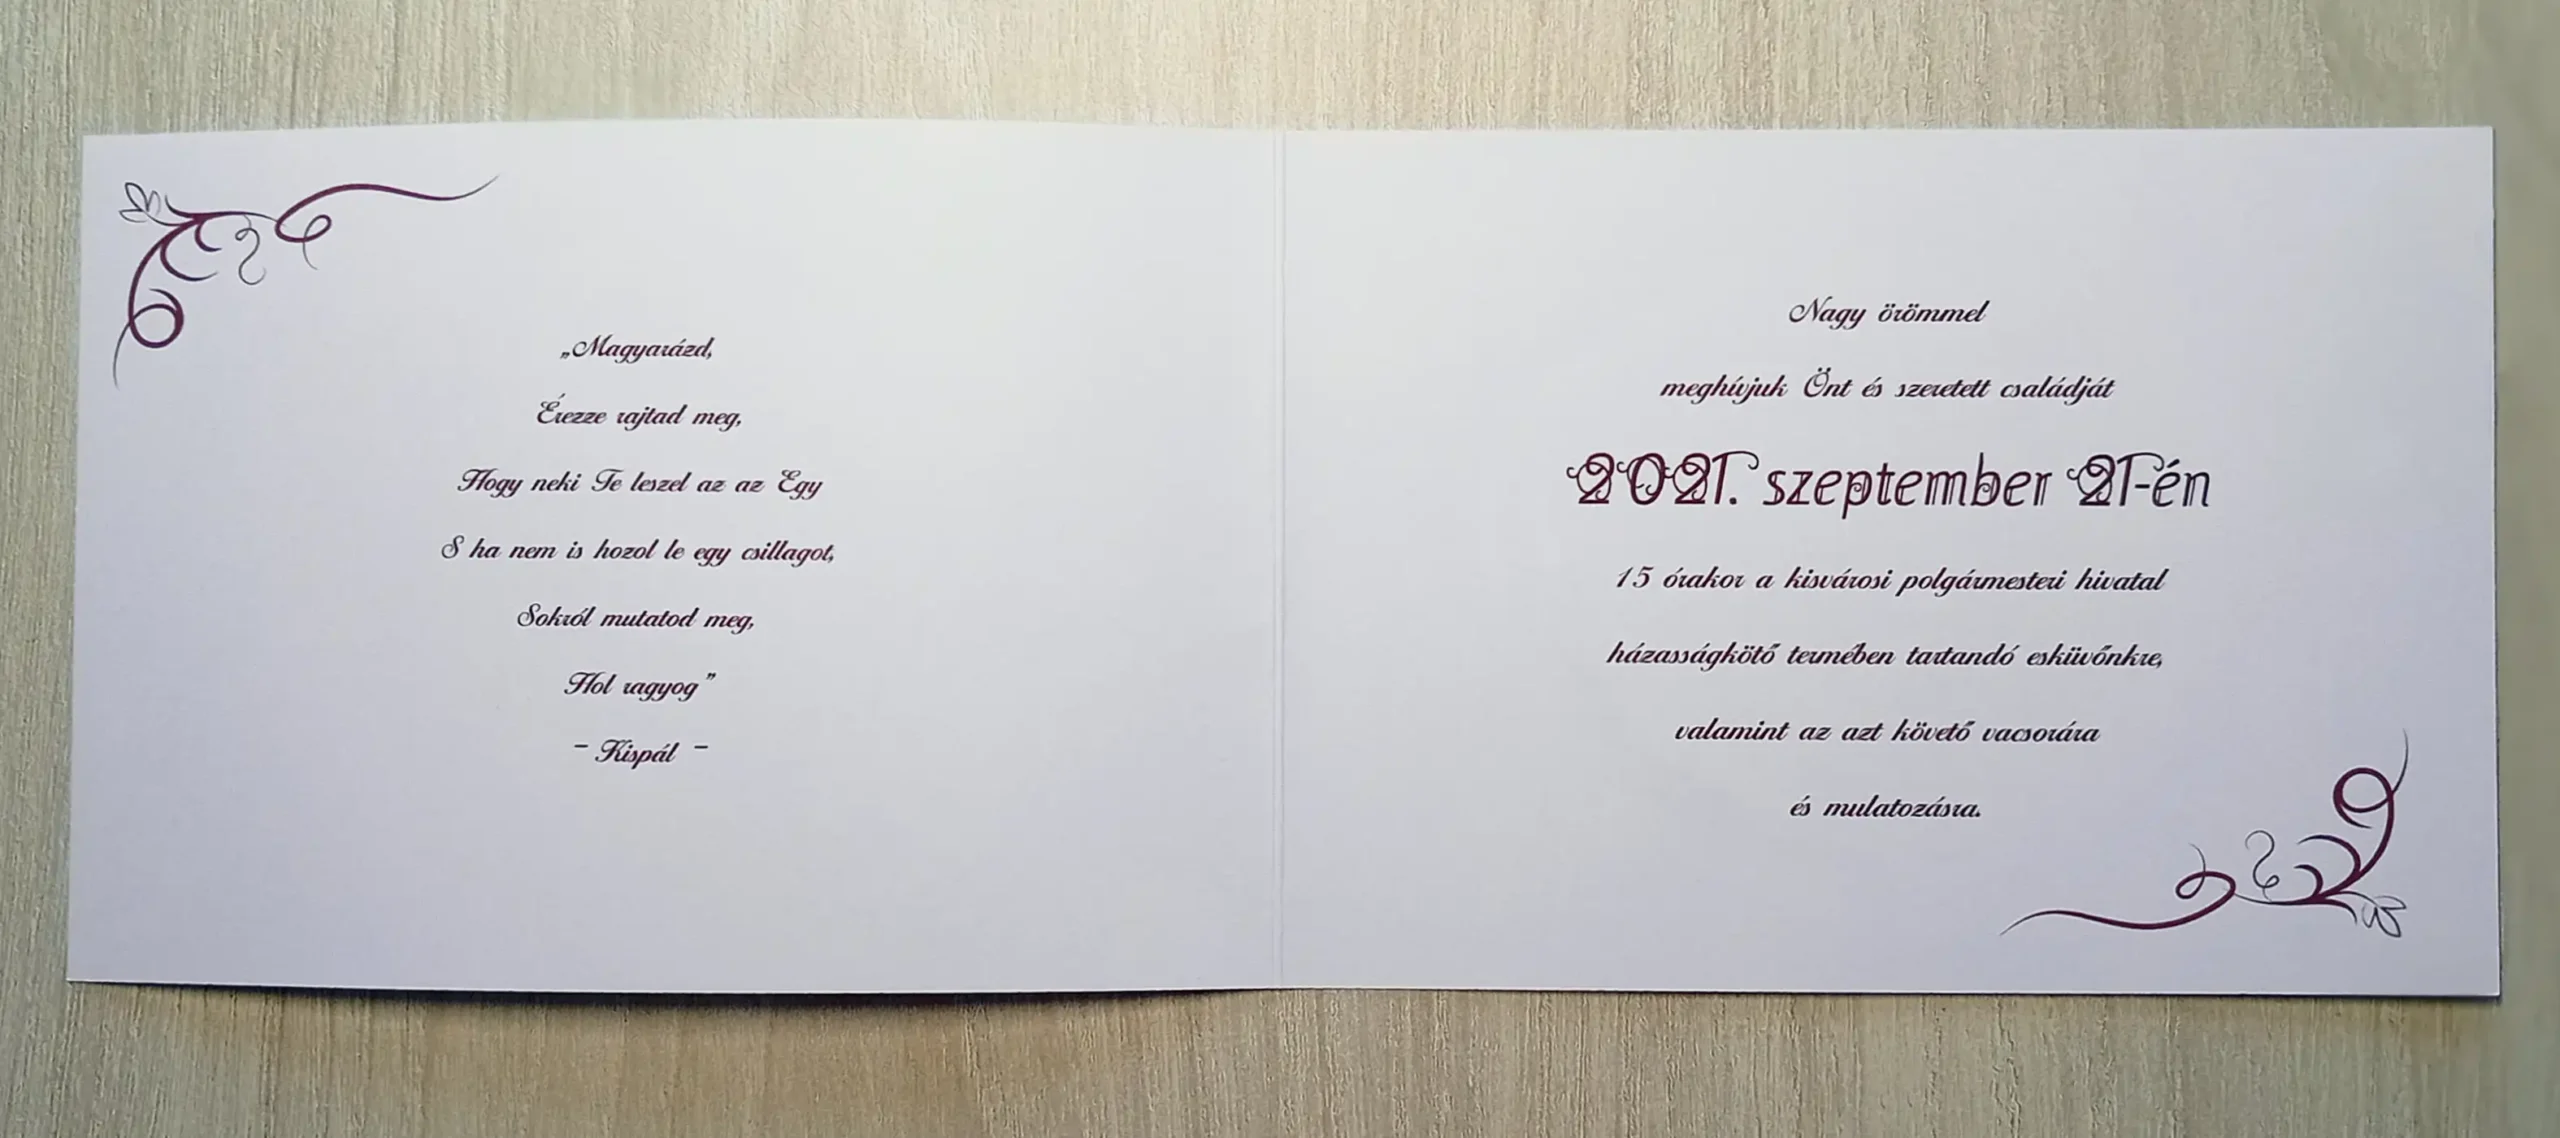 „Magyarázd,
Érezze rajtad meg,
Hogy neki Te leszel az az Egy
S ha nem is hozol le egy csillagot,
Sokról mutatod meg,
Hol ragyog”
- Kispál -
Nagy örömmel
meghívjuk Önt és szeretett családját
2021. szeptember 21-én
15 órakor a kisvárosi polgármesteri hivatal
házasságkötő termében tartandó esküvőnkre,
valamint az azt követő vacsorára
és mulatozásra.